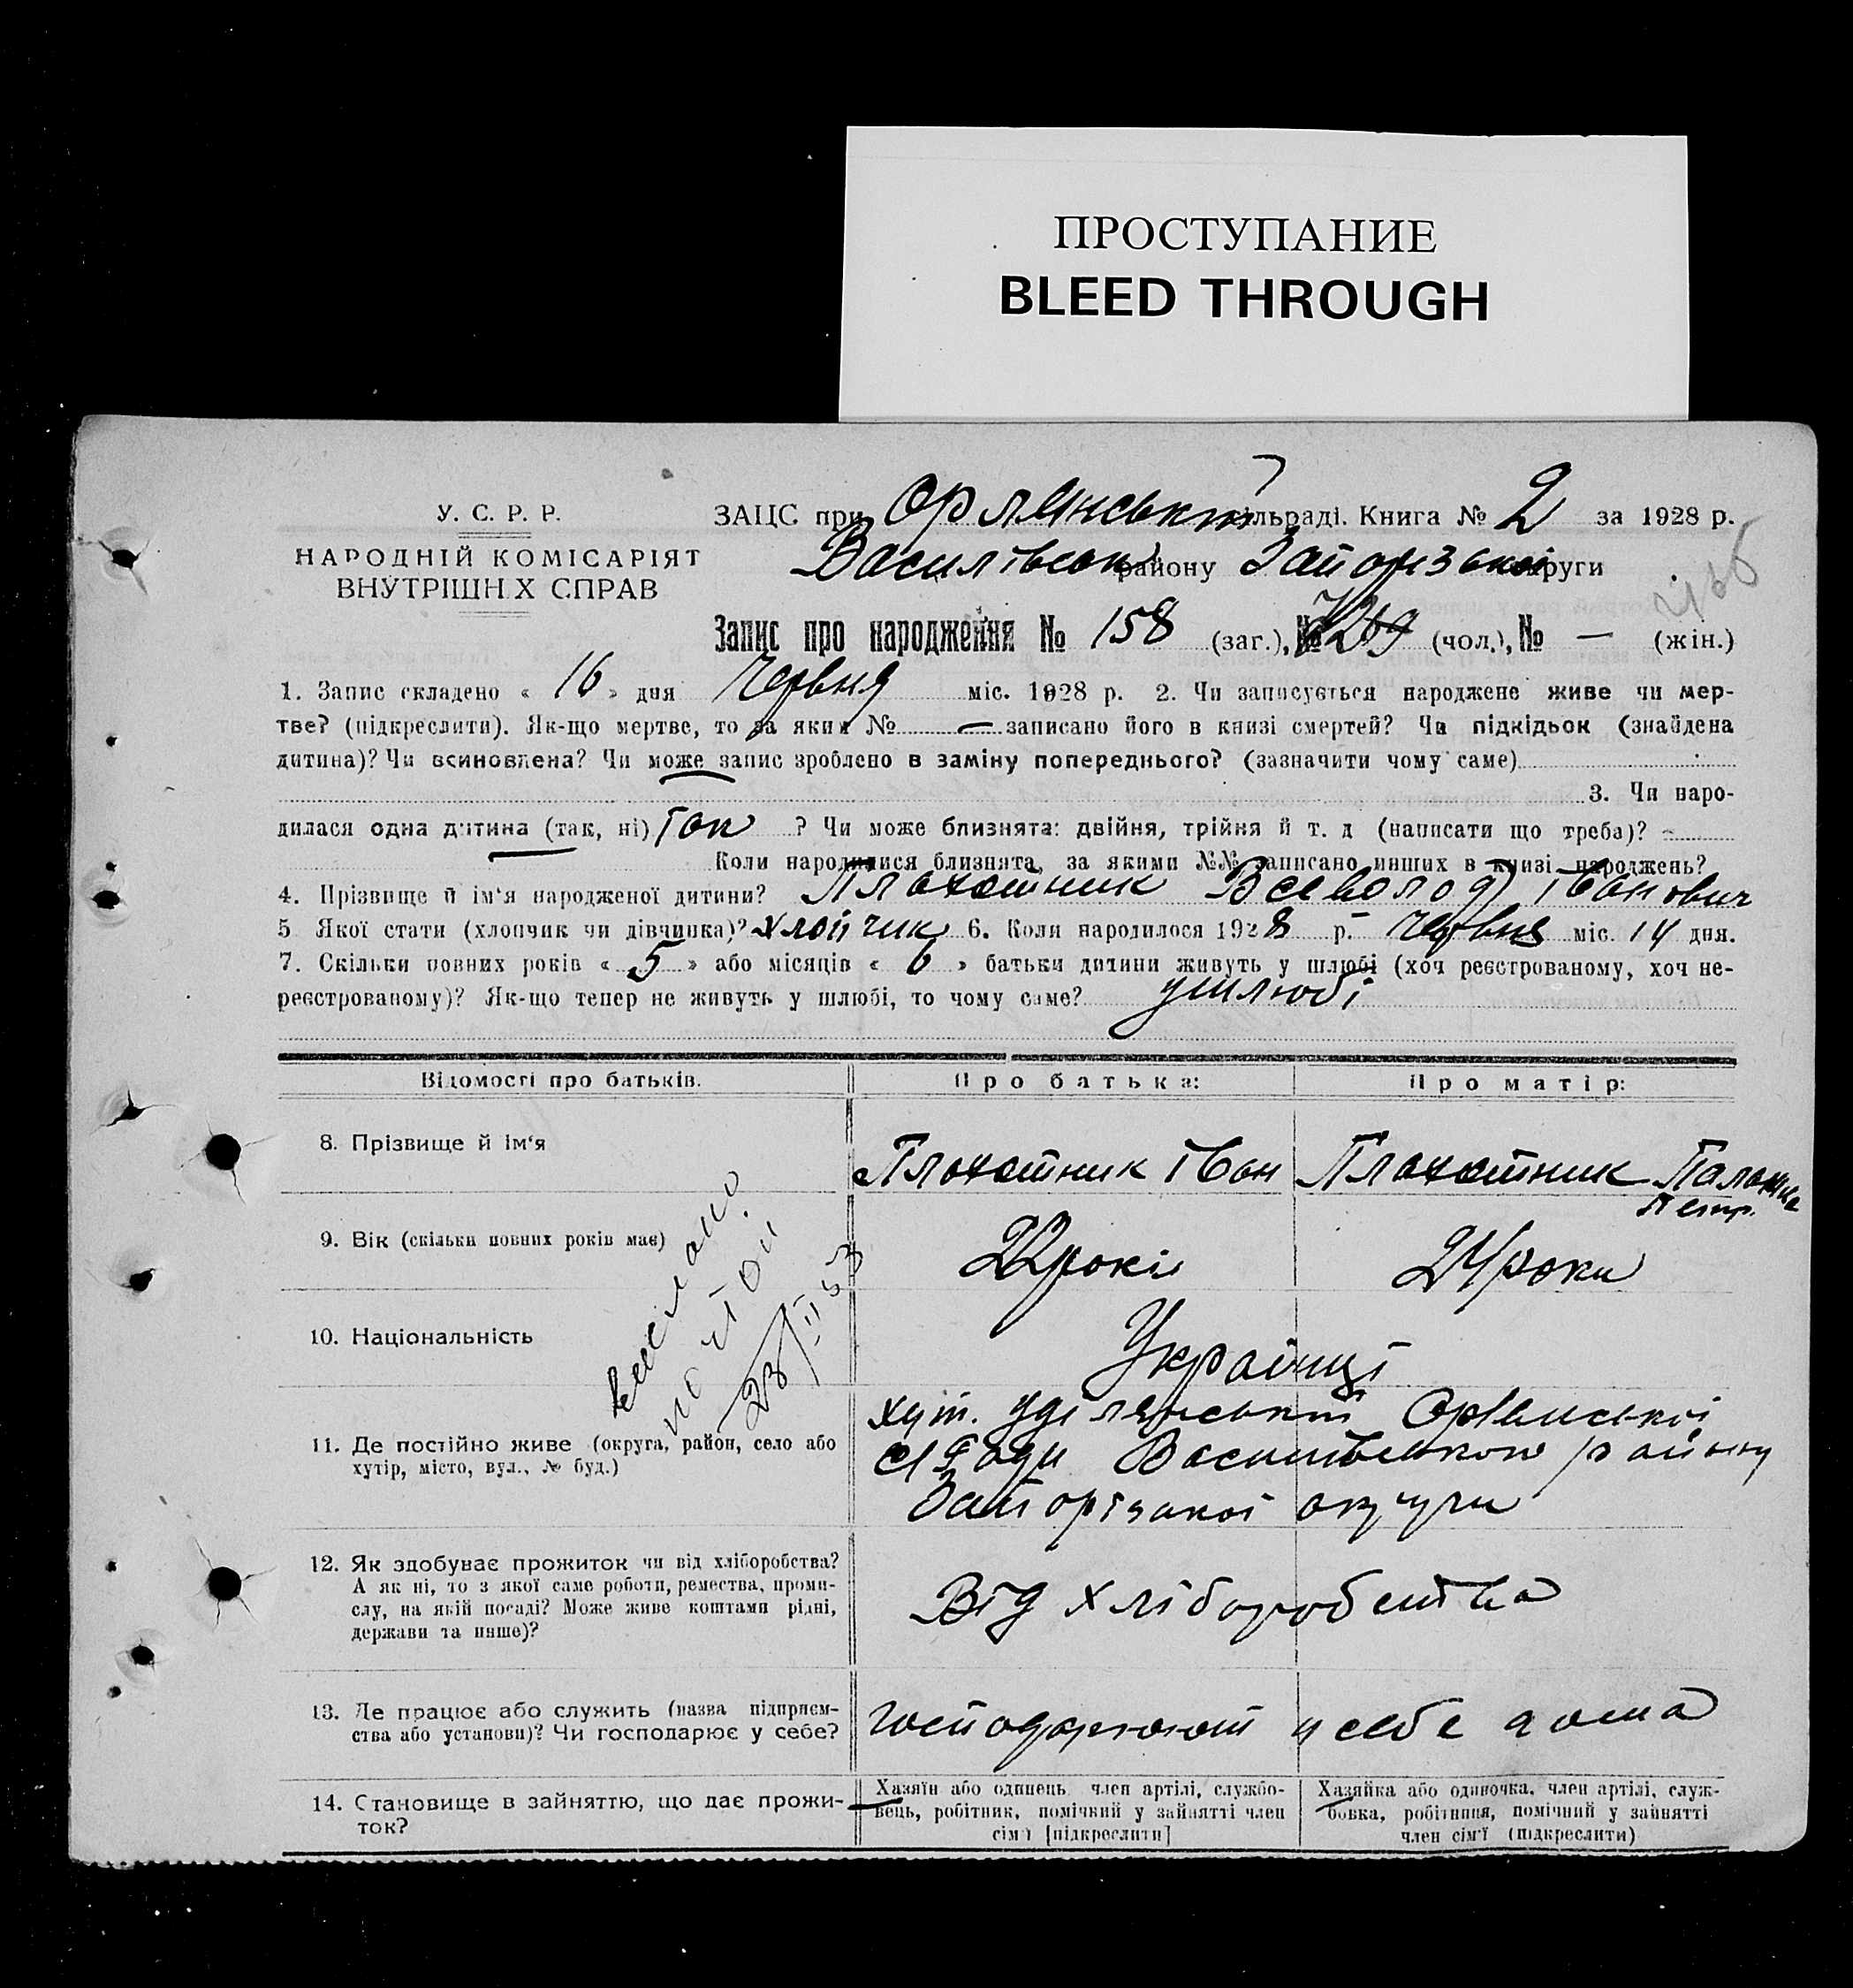 ПРОСТУПАНИЕ
BLEED THROUGH
У. С. Р. Р.
НАРОДНІЙ КОМІСАРІЯТ
ВНУТРІШН.Х СПРАВ
ЗАЦС при Орлянській сільраді. Книга № 2 за 1928 р.
Василівськ району Запорізької округи
Запис про народження № 158 (заг.), № (чол.), № — (жін.)
1. Запис складено « 16 » дня Червня міс. 1928 р. 2. Чи записується народжене живе чи мер-
тве? (підкреслити). Як-що мертве, то за яким № — записано його в книзі смертей? Чи підкідьок (знайдена
дитина)? Чи всиновлена? Чи може запис зроблено в заміну попереднього? (зазначити чому саме)
3. Чи наро-
дилася одна дитина (так, ні) Так ? Чи може близнята: двійня, трійня й т. д (написати що треба)? -
Коли народилися близнята, за якими №№ записано инших в книзі народжень?
4. Прізвище й ім'я народженої дитини? Плохотник Всеволод Іванович
5 Якої стати (хлопчик чи дівчинка)? Хлопчик 6. Коли народилося 1928 р. Червня міс. 14 дня.
7. Скільки повних років « 5 » або місяців « 6 » батьки дитини живуть у шлюбі (хоч реєстрованому, хоч не-
реєстрованому)? Як-що тепер не живуть у шлюбі, то чому саме? у шлюбі
Відомості про батьків.
Про батька:
Про матір:
8. Прізвище й ім'я
Плохотник Іван
Плохотник Палажка
Петр.
9. Вік (скільки повних років має)
років
24 роки
10. Національність
Українці
вислано
почтой
23/II 53
11. Де постійно живе (округа, район, село або
хутір, місто, вул., № буд.)
хут. Орлянської
с/Ради Василівського району
Запорізької округи
12. Як здобуває прожиток чи від хліборобства?
А як ні, то з якої саме роботи, ремества, проми-
слу, на якій посаді? Може живе коштами рідні,
держави та инше)?
Від хліборобства
13. Де працює або служить (назва підприєм-
ства або установи)? Чи господарює у себе?
господарюют у себе дома
14. Становище в зайняттю, що дає прожи-
ток?
Хазяїн або одинець член артілі, службо-
вець, робітник, помічний у зайнятті член
сім'ї [підкреслити]
Хазяйка або одиночка, член артілі, служ-
бовка, робітниця, помічний у зайнятті
член сім'ї (підкреслити)